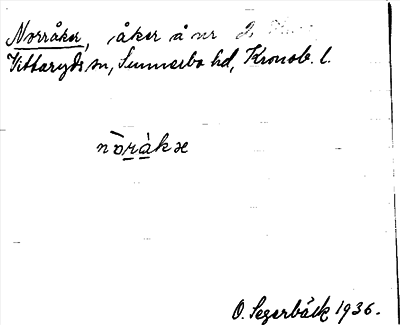 Norråker, åker å nr 2
Vittaryds sn, Sunnerbo hd, Kronob. l.
nòràkæ
O. Segerbäck 1936.